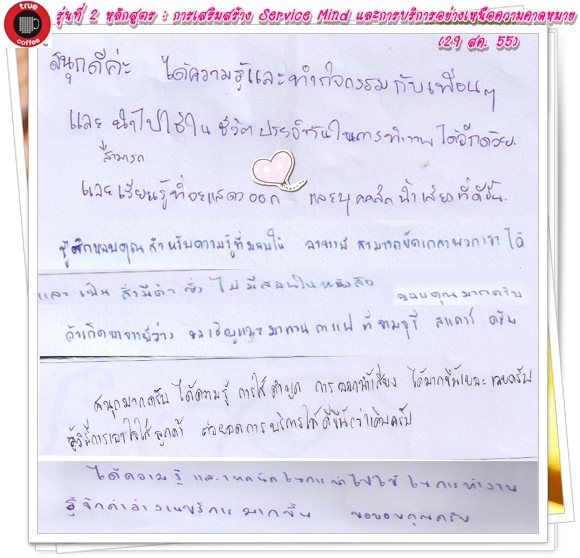 true
coffee
รุ่นที่ 2 หลักสูตร : การเสริมสร้าง Service Mind และการบริการอย่างเหนือความคาดหมาย
(29 สค. 55)
สนุกดีค่ะ ได้ความรู้และทำกิจกรรมกับเพื่อนๆ
และ นำไปใช้ใน ชีวิตประจำวันในการทำงาน ได้อีกด้วย.
สามารถ
และเรียนรู้ที่จะแสดงออก และบุคคลิก น้ำเสียง ที่ดีขึ้น.
รู้สึกขอบคุณสำหรับความรู้ที่มอบให้ อาจารย์ สามารถขัดเกลาพวกเรา ได้
และ เป็น สิ่งมีค่า ซึ่ง ไม่ มีสอนในหนังสือ ขอบคุณมากครับ
ถ้าเกิดอาจารย์ว่าง ขอเชิญแวะมาทาน กาแฟ ที่ ครับ
สนุกมากครับ ได้ความรู้ การใช้คำพูด การออกน้ำเสียง ได้มากขึ้นเยอะเลยครับ
รู้วิธีการเอาใจใส่ลูกค้า ตลอดการบริการให้ดีขึ้นกว่าเดิมครับ
ได้ความรู้ และเทคนิคในการนำไปใช้ในการทำงาน
รู้จักคำว่างานบริการมากขึ้น ขอขอบคุณครับ